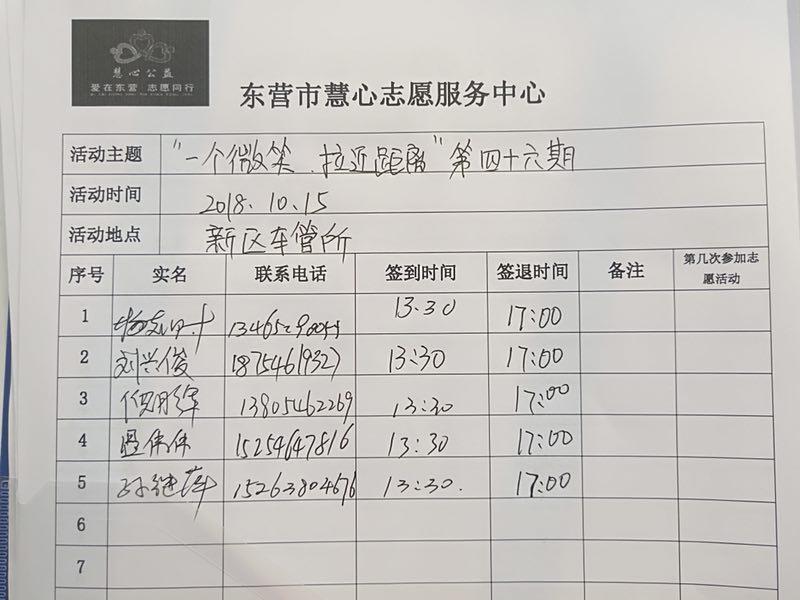 慧心公益
爱在东营 志愿同行
东营市慧心志愿服务中心
活动主题 "一个微笑、拉近距离"第四十六期
活动时间 2018.10.15
活动地点 新区车管所
序号 实名 联系电话 签到时间 签退时间 备注 第几次参加志愿活动
1 13.30 17:00
2 刘兴俊 18754619327 13:30 17:00
3 13805462269 13:30 17:00
4 温伟伟 15254647816 13:30 17:00
5 孙继萍 15263804676 13:30. 17:00
6
7